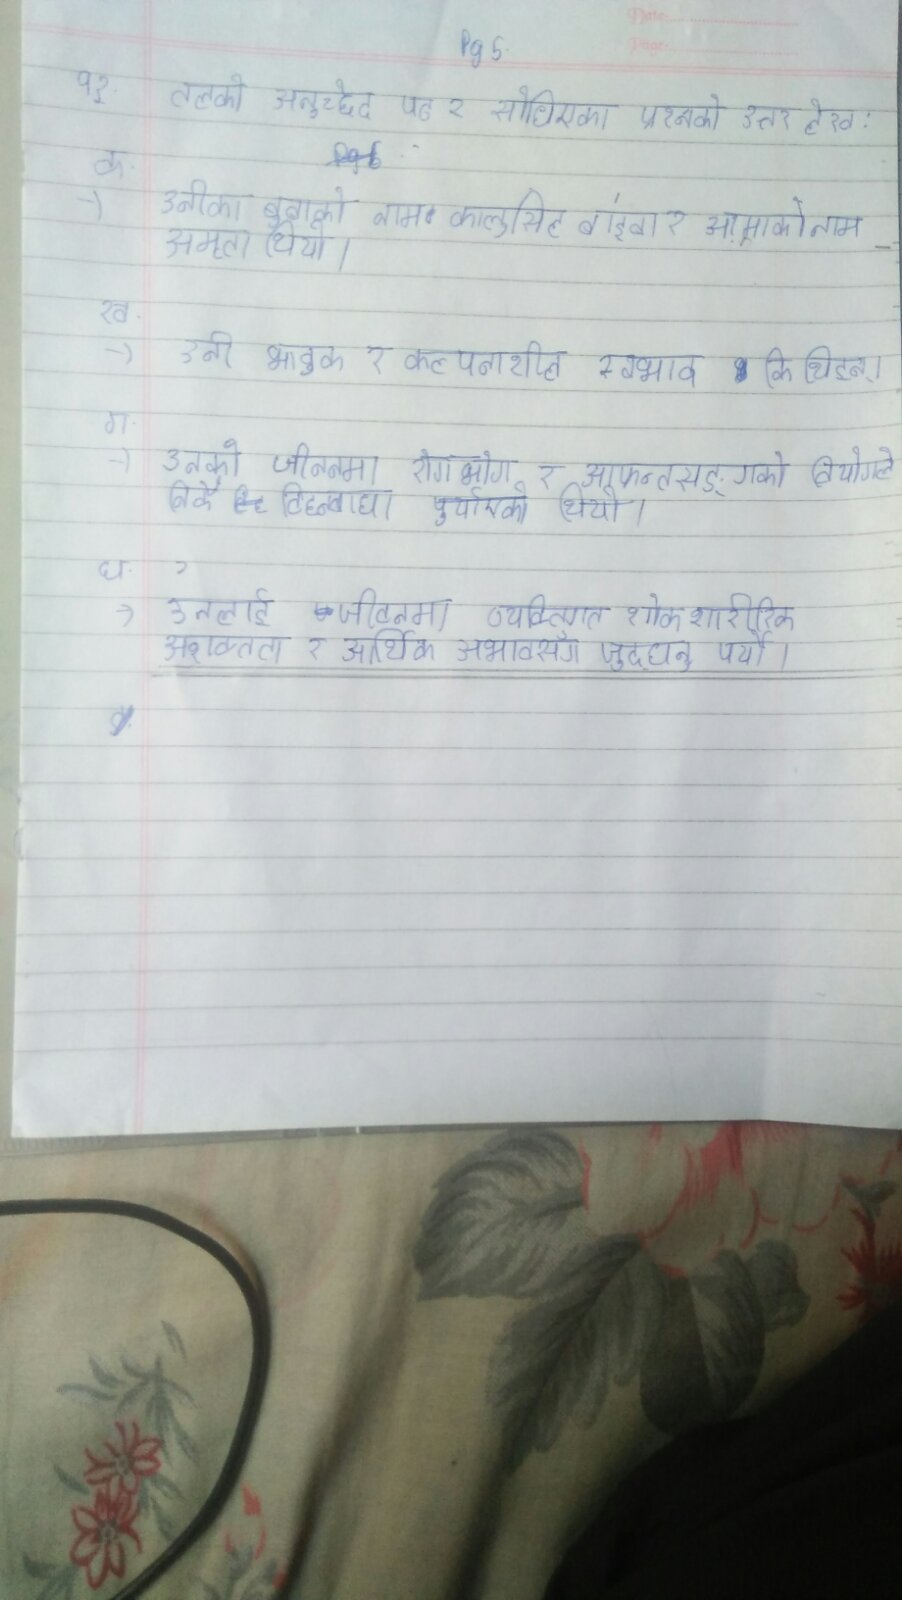 Date:
Page:
Pg 5.
१३. तलको अनुच्छेद पढ र सोधिएका प्रश्नको उत्तर लेख:
क.
→ उनीका बुवाको नाम कालुसिह वाइवा र आमाको नाम
अमृता थियो।
ख.
→ उनी भावुक र कल्पनाशील स्वभाव कि थिइन्।
ग.
→ उनको जीवनमा रोगभोग र आफन्तसङ्गको वियोगले
निकै विघ्नबाधा पुर्याएको थियो।
घ. ?
→ उनलाई जीवनमा व्यक्तिगत शोक शारीरिक
अशक्तता र आर्थिक अभावसँग जुद्धनु पर्यो।